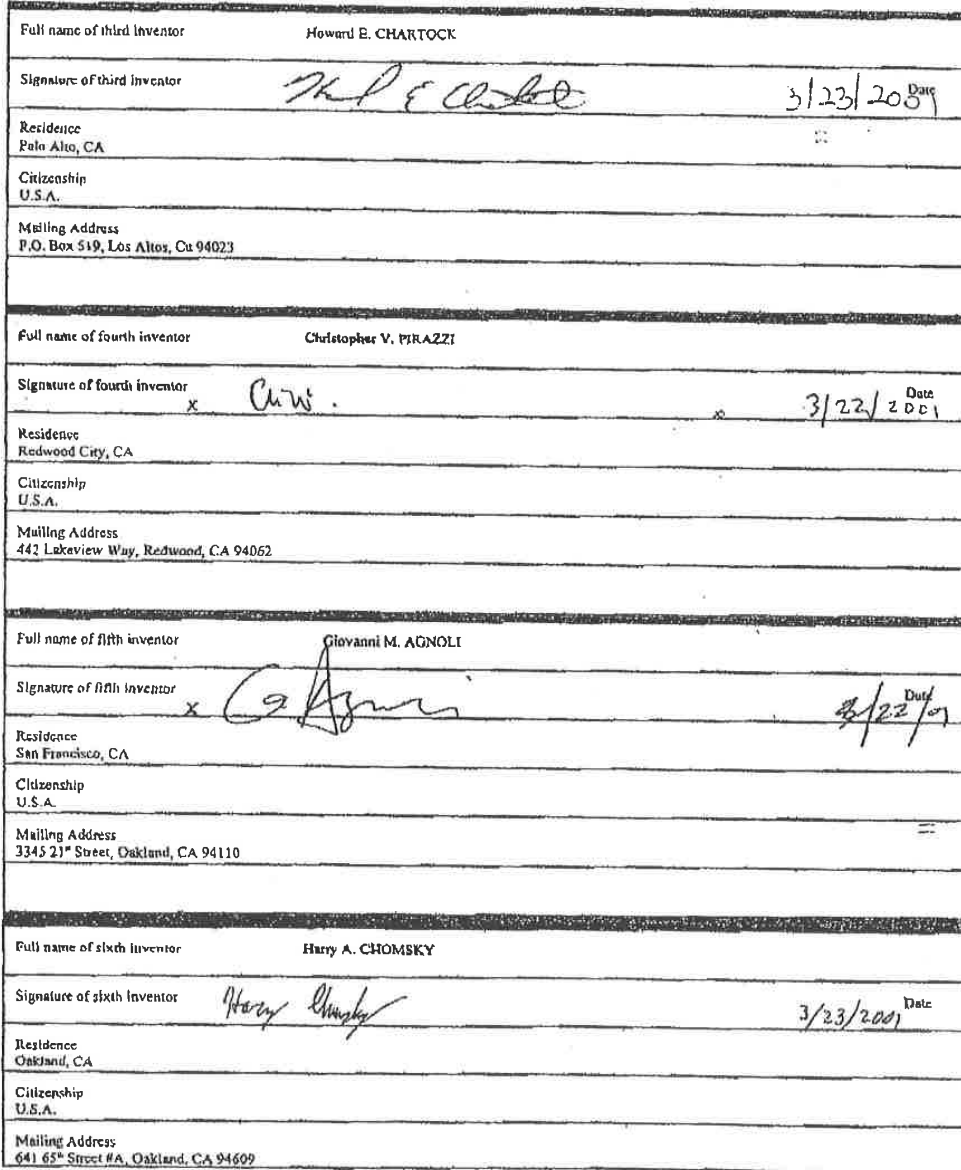 Full name of third inventor Howard E. CHARTOCK
Signature of third inventor 3/23/2001 Date
Residence
Palo Alto, CA
Citizenship
U.S.A.
Mailing Address
P.O. Box 519, Los Altos, Ca 94023
Full name of fourth inventor Christopher V. PIRAZZI
Signature of fourth inventor x x 3/22/2001 Date
Residence
Redwood City, CA
Citizenship
U.S.A.
Mailing Address
442 Lakeview Way, Redwood, CA 94062
Full name of fifth inventor Giovanni M. AGNOLI
Signature of fifth inventor x G Agnoli 3/22/01 Date
Residence
San Francisco, CA
Citizenship
U.S.A.
Mailing Address
3345 21st Street, Oakland, CA 94110
Full name of sixth inventor Harry A. CHOMSKY
Signature of sixth inventor Harry Chomsky 3/23/2001 Date
Residence
Oakland, CA
Citizenship
U.S.A.
Mailing Address
641 65th Street #A, Oakland, CA 94609